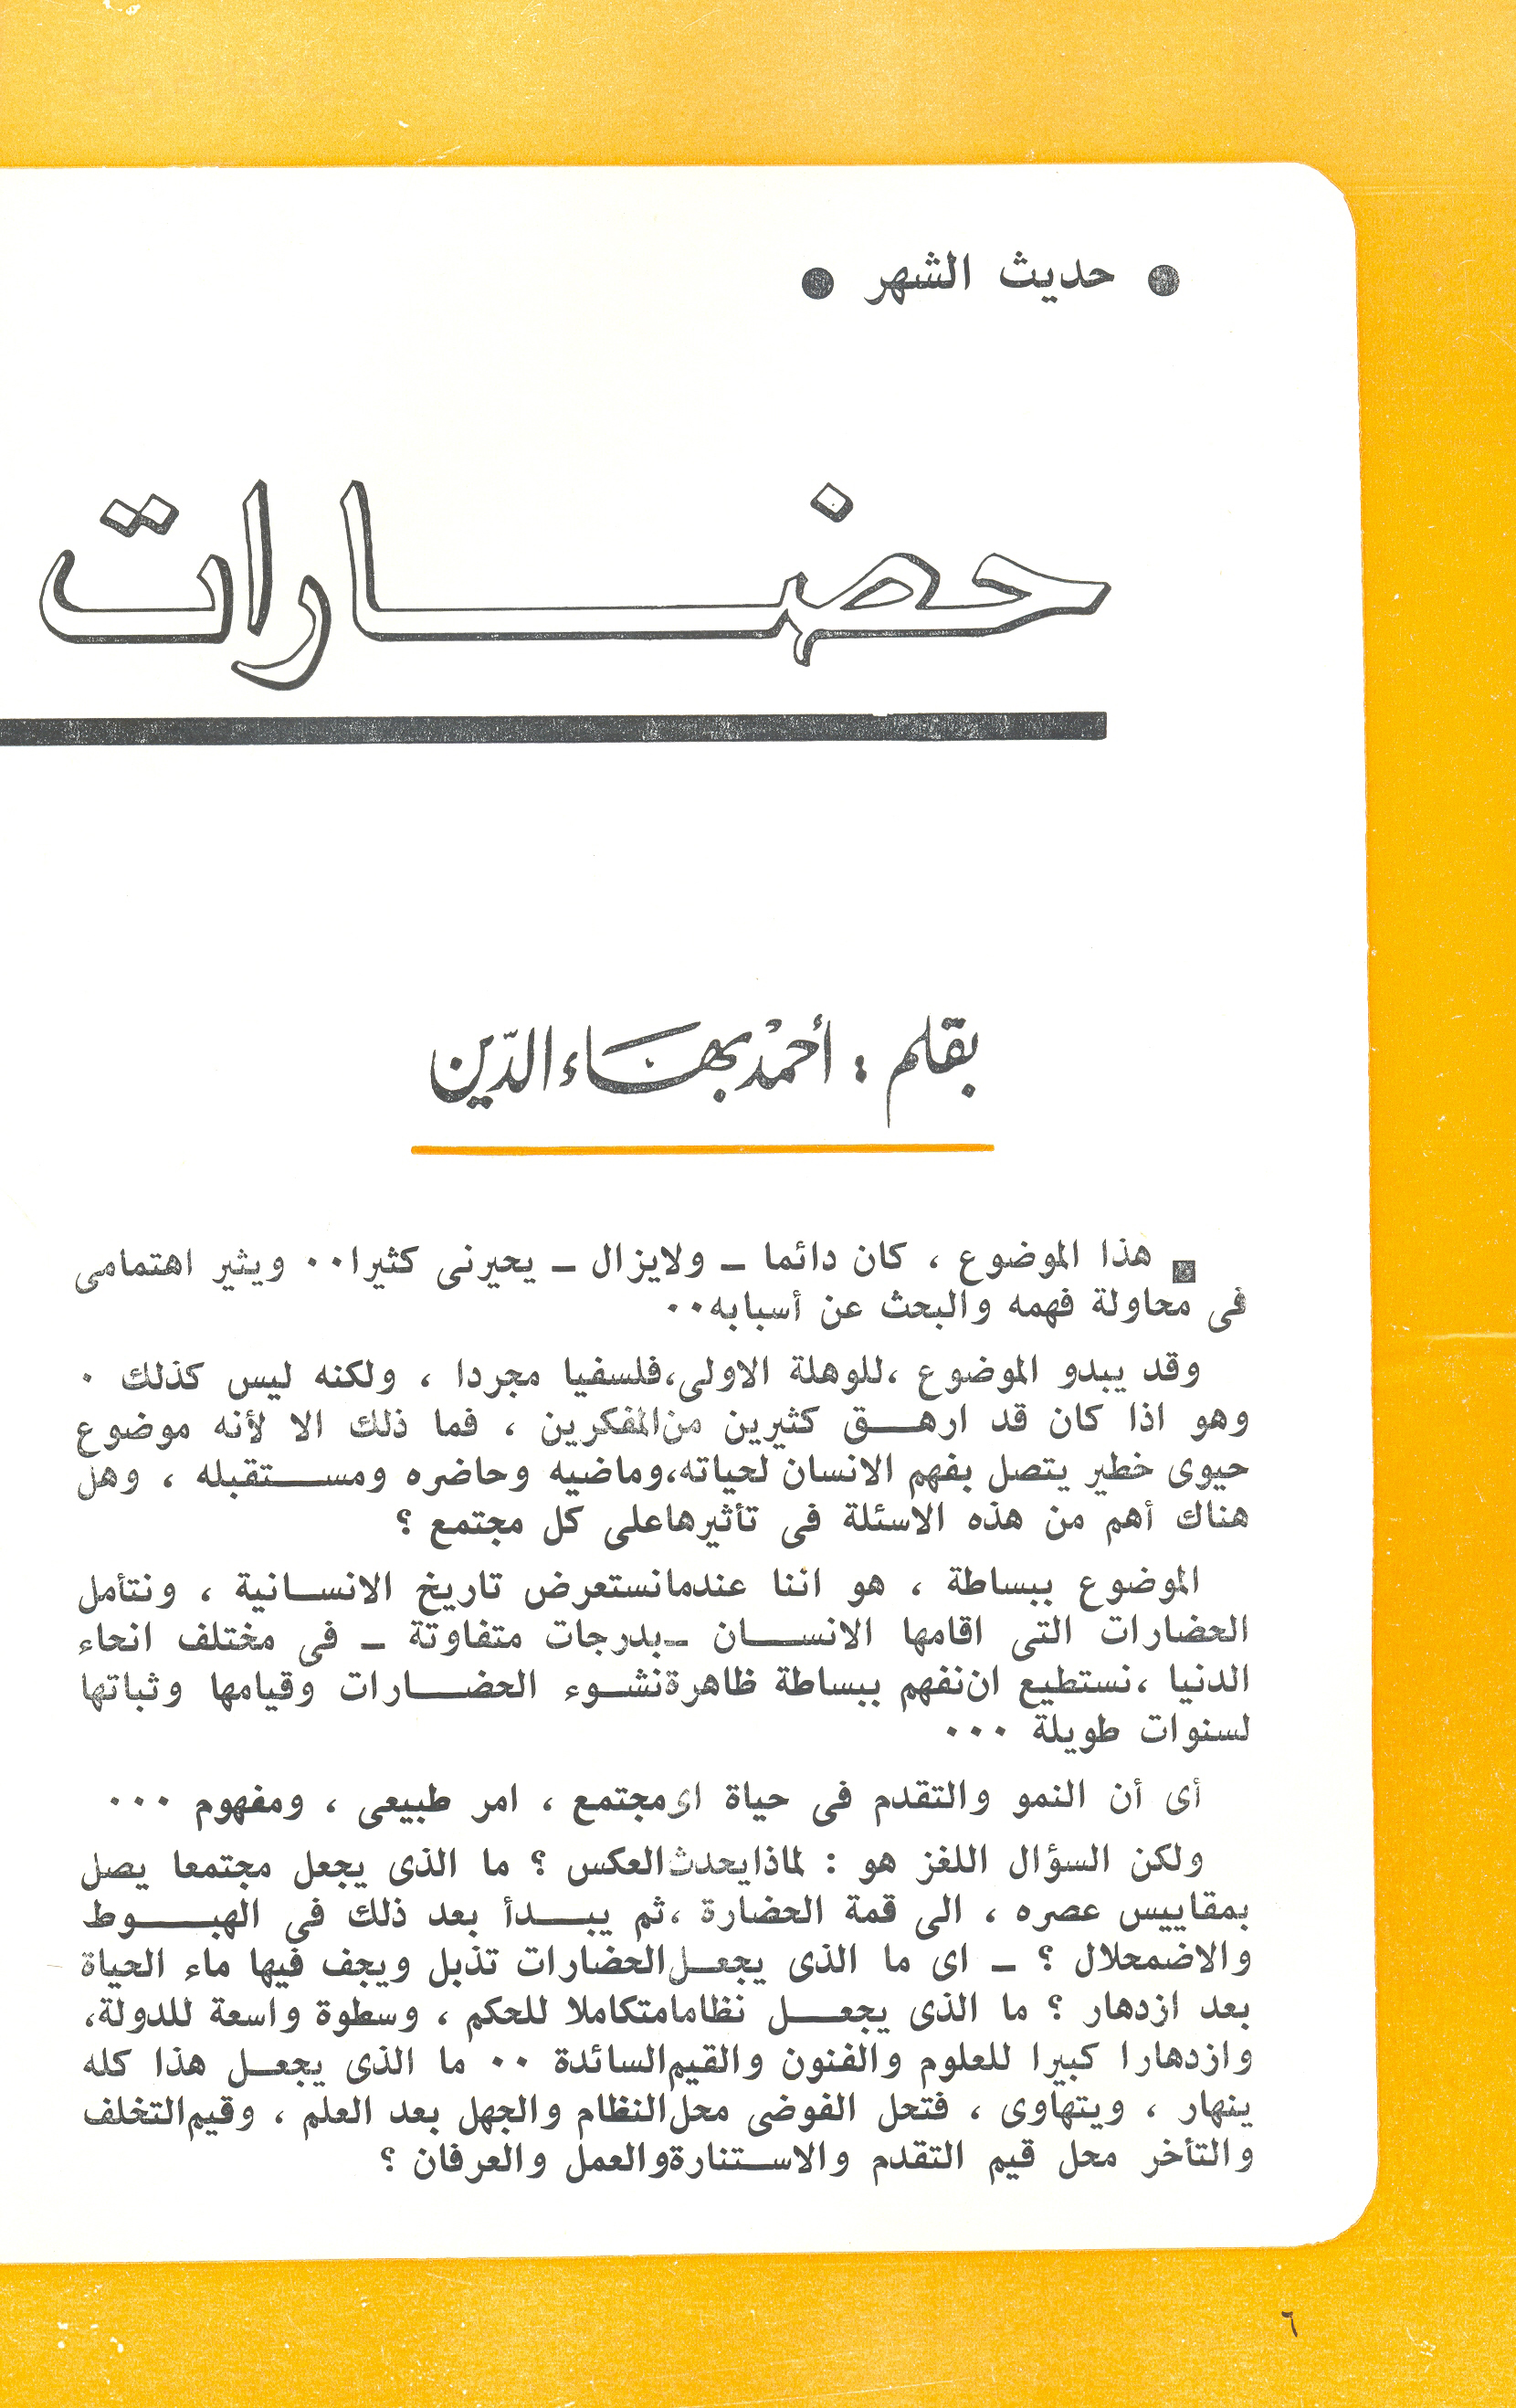 ● حديث الشهر ●
حضارات
بقلم : أحمد بهاء الدين
هذا الموضوع ، كان دائما ـ ولايزال ـ يحيرنى كثيرا٠٠ ويثير اهتمامى
فى محاولة فهمه والبحث عن أسبابه٠٠
وقد يبدو الموضوع ،للوهلة الاولى،فلسفيا مجردا ، ولكنه ليس كذلك ٠
وهو اذا كان قد ارهق كثيرين من المفكرين ، فما ذلك الا لأنه موضوع
حيوى خطير يتصل بفهم الانسان لحياته،وماضيه وحاضره ومستقبله ، وهل
هناك أهم من هذه الاسئلة فى تأثيرها على كل مجتمع ؟
الموضوع ببساطة ، هو اننا عندما نستعرض تاريخ الانسانية ، ونتأمل
الحضارات التى اقامها الانسان ـ بدرجات متفاوتة ـ فى مختلف انحاء
الدنيا ،نستطيع ان نفهم ببساطة ظاهرة نشوء الحضارات وقيامها وثباتها
لسنوات طويلة ٠٠٠
أى أن النمو والتقدم فى حياة اى مجتمع ، امر طبيعى ، ومفهوم ٠٠٠
ولكن السؤال اللغز هو : لماذا يحدث العكس ؟ ما الذى يجعل مجتمعا يصل
بمقاييس عصره ، الى قمة الحضارة ،ثم يبدأ بعد ذلك فى الهبوط
والاضمحلال ؟ ـ اى ما الذى يجعل الحضارات تذبل ويجف فيها ماء الحياة
بعد ازدهار ؟ ما الذى يجعل نظاما متكاملا للحكم ، وسطوة واسعة للدولة،
وازدهارا كبيرا للعلوم والفنون والقيم السائدة ٠٠ ما الذى يجعل هذا كله
ينهار ، ويتهاوى ، فتحل الفوضى محل النظام والجهل بعد العلم ، وقيم التخلف
والتأخر محل قيم التقدم والاستنارة والعمل والعرفان ؟
٦